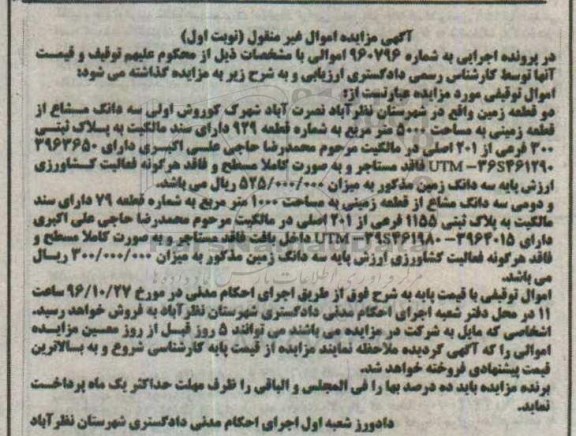 آگهی مزایده اموال غیر منقول (نوبت اول)
در پرونده اجرایی به شماره ۹۶۰۷۹۶ اموالی با مشخصات ذیل از محکوم علیهم توقیف و قیمت
آنها توسط کارشناس رسمی دادگستری ارزیابی و به شرح زیر به مزایده گذاشته می شود:
اموال توقیفی مورد مزایده عبارتست از:
دو قطعه زمین واقع در شهرستان نظرآباد نصرت آباد شهرک کوروش اولی سه دانگ مشاع از
قطعه زمینی به مساحت ۵۰۰۰ متر مربع به شماره قطعه ۹۲۹ دارای سند مالکیت به پلاک ثبتی
۳۰۰ فرعی از ۲۰۱ اصلی در مالکیت مرحوم محمدرضا حاجی علی اکبری دارای ۳۹۶۳۶۵۰
UTM -۳۶S۴۶۱۲۹۰ فاقد مستاجر و به صورت کاملا مسطح و فاقد هرگونه فعالیت کشاورزی
ارزش پایه سه دانگ زمین مذکور به میزان ۵۲۵/۰۰۰/۰۰۰ ریال می باشد.
و دومی سه دانگ مشاع از قطعه زمینی به مساحت ۱۰۰۰ متر مربع به شماره قطعه ۷۹ دارای سند
مالکیت به پلاک ثبتی ۱۱۵۵ فرعی از ۲۰۱ اصلی در مالکیت مرحوم محمدرضا حاجی علی اکبری
دارای UTM -۳۹S۴۶۱۹۸۰ -۳۹۶۴۰۱۵ داخل بافت فاقد مستاجر و به صورت کاملا مسطح و
فاقد هرگونه فعالیت کشاورزی ارزش پایه سه دانگ زمین مذکور به میزان ۳۰۰/۰۰۰/۰۰۰ ریال
می باشد.
اموال توقیفی با قیمت پایه به شرح فوق از طریق اجرای احکام مدنی در مورخ ۹۶/۱۰/۲۷ ساعت
۱۱ در محل دفتر شعبه اجرای احکام مدنی دادگستری شهرستان نظرآباد به فروش خواهد رسید.
اشخاصی که مایل به شرکت در مزایده می باشند می توانند ۵ روز قبل از روز معین مزایده
اموالی را که آگهی گردیده ملاحظه نمایند مزایده از قیمت پایه کارشناسی شروع و به بالاترین
قیمت پیشنهادی فروخته خواهد شد.
برنده مزایده باید ده درصد بها را فی المجلس و الباقی را ظرف مهلت حداکثر یک ماه پرداخت
نماید.
دادورز شعبه اول اجرای احکام مدنی دادگستری شهرستان نظرآباد